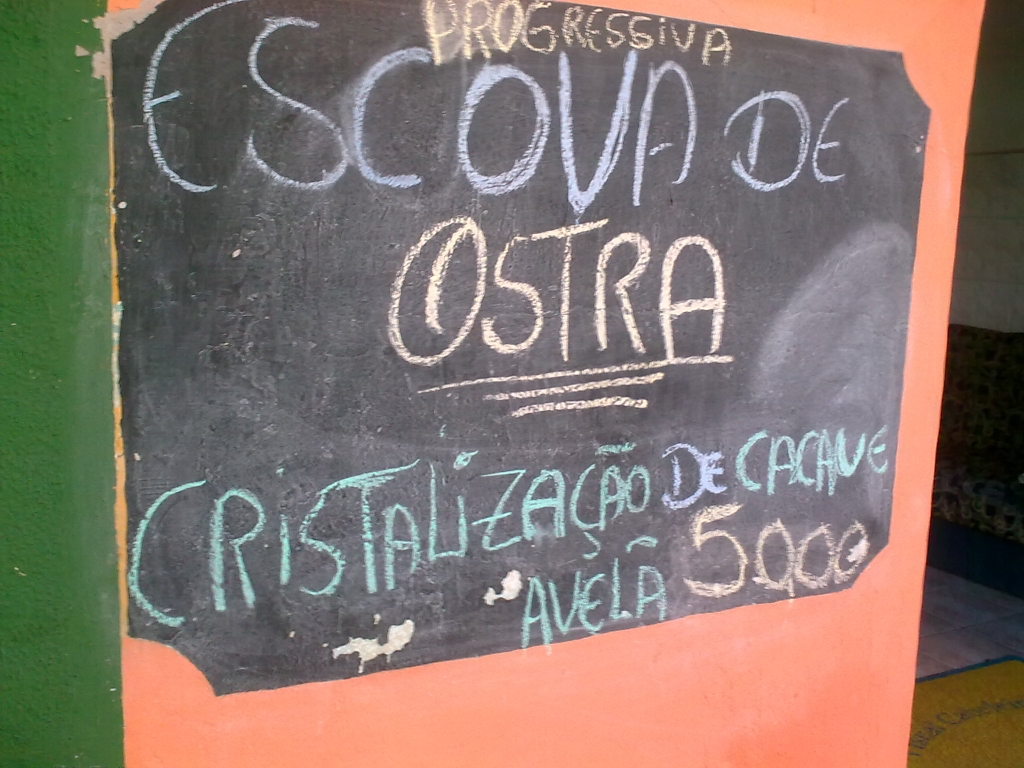 PROGRESSIVA
ESCOVA DE
OSTRA
CRISTALIZAÇÃO DE CACAVE
AVELÃ 50,00